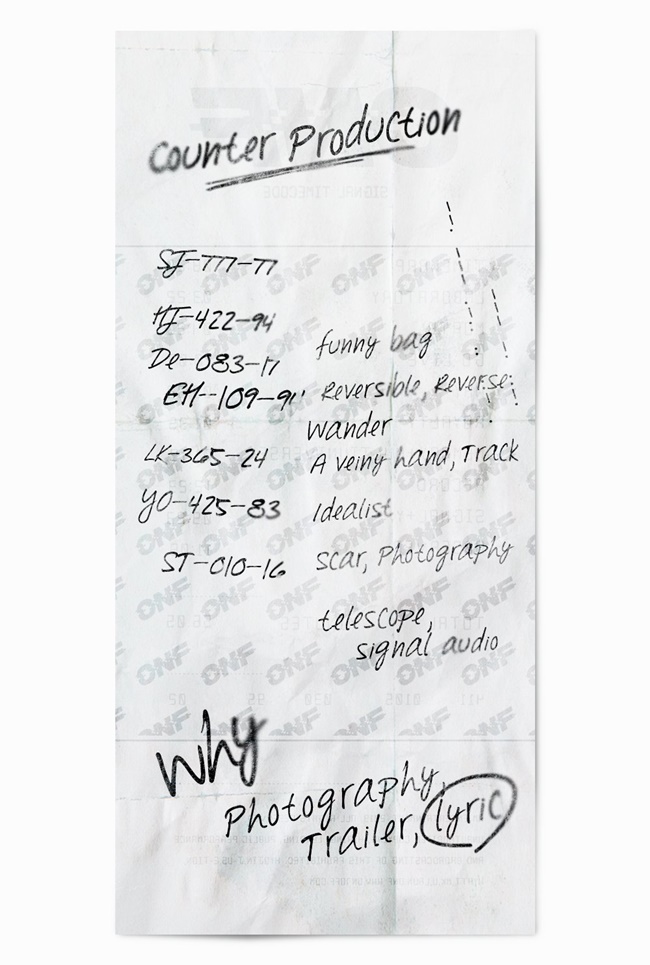 Counter Production
SJ-777-77
HJ-422-94
funny bag
De-083-17
EH-109-91
Reversible, Reverse
Wander
LK-365-24
A veiny hand, Track
YO-425-83
Idealist
ST-010-16
Scar, Photography
telescope,
signal audio
Why
Photography,
Trailer, lyric
ONF